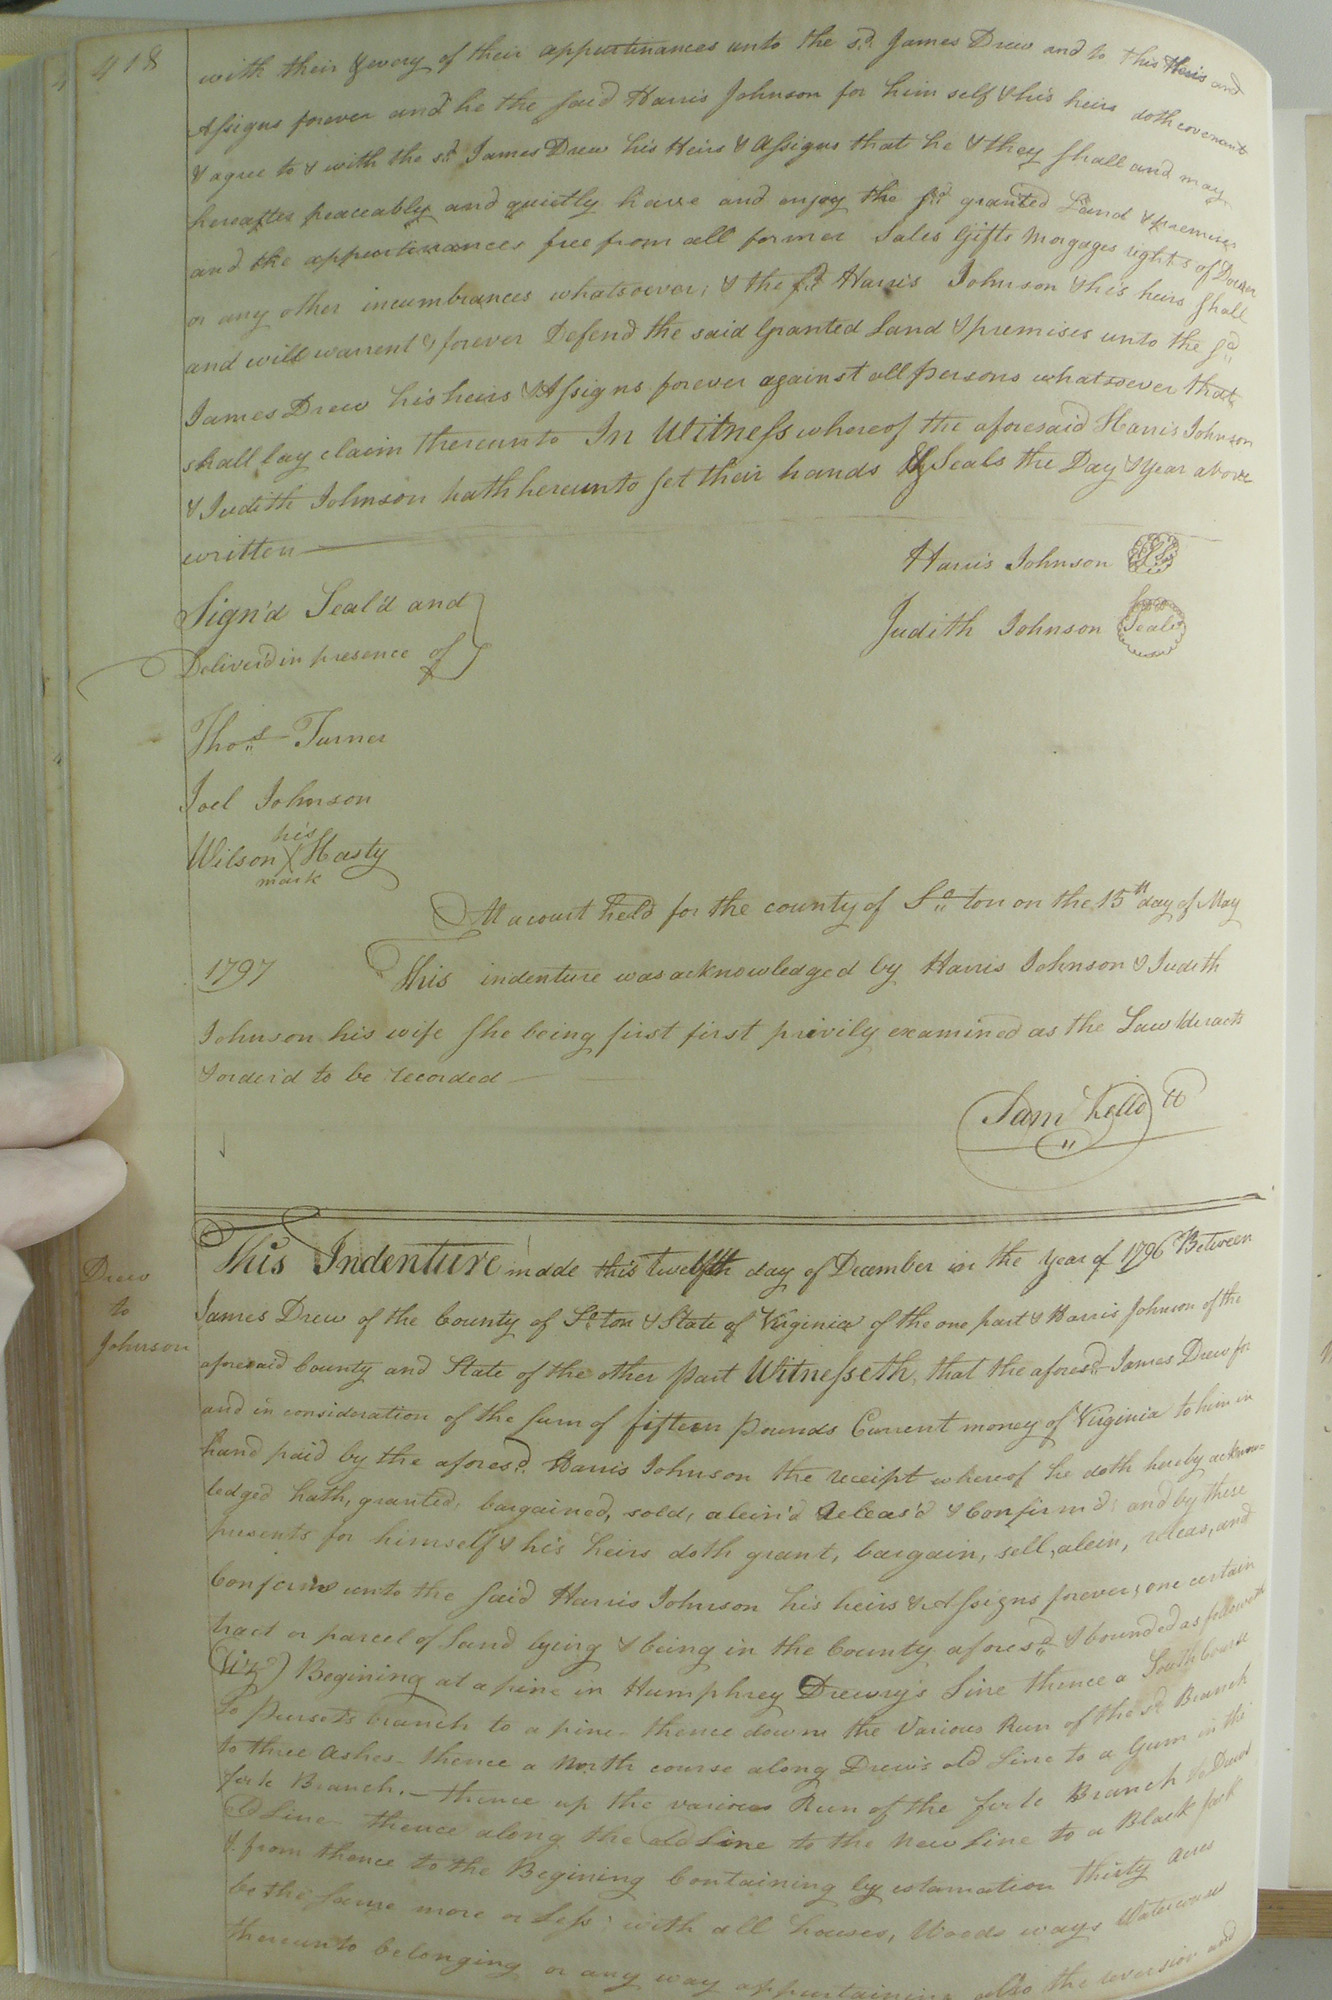 418
with their & every of their appurtinances unto the sd James Drew and to this Heirs and
Assigns forever and he the said Harris Johnson for him self & his heirs doth covenant
& agree to & with the sd James Drew his Heirs & Assigns that he & they shall and may
hereafter peaceably and quietly have and enjoy the sd granted Land & premises
and the appurtinances free from all former Sales Gifts Morgages rights of Dower
or any other incumbrances whatsoever; & the sd Harris Johnson & his heirs shall
and will warrent & forever Defend the said Granted Land & premises unto the sd
James Drew his heirs & Assigns forever against all persons whatsoever that
shall lay claim thereunto In Witness whereof the aforesaid Harris Johnson
& Judith Johnson hath hereunto set their hands & Seals the Day & Year above
written
Harris Johnson
Sign'd Seal'd and
Judith Johnson Seal
Deliver'd in presence of
Thos Turner
Joel Johnson
his
Wilson X Hasty
mark
At a court held for the county of So ton on the 15th day of May
1797 This indenture was acknowledged by Harris Johnson & Judith
Johnson his wife She being first first privily examined as the Law directs
& order'd to be recorded
Sam Kello
This Indenture made this twelfth day of December in the Year of 1796 Between
Drew
to
Johnson
James Drew of the County of So ton & State of Virginia of the one part & Harris Johnson of the
aforesaid County and State of the other part Witnesseth, that the aforesd James Drew for
and in consideration of the sum of fifteen pounds Current money of Virginia to him in
hand paid by the aforesd Harris Johnson the receipt whereof he doth hereby acknow-
ledged hath, granted, bargained, sold, alein'd Releas'd & Confirm'd; and by these
presents for himself & his heirs doth grant, bargain, sell, alein, releas, and
Conferm unto the said Harris Johnson his heirs & Assigns forever; one certain
tract or parcel of Land lying & being in the County aforesd & bounded as followeth
(Viz) Begining at a pine in Humphrey Drewry's Line thence a South Course
To Purset's branch to a pine thence down the Various Run of the sd Branch
to three Ashes thence a North course along Drew's old Line to a Gum in the
fork Branch, thence up the various Run of the fork Branch to Drews
Old Line thence along the old Line to the New Line to a Black Jack
& from thence to the Begining Containing by estamation thirty Acres
be the same more or Less; with all houses, Woods ways Watercourses
thereunto belonging or any way appurtaining also the reversion and